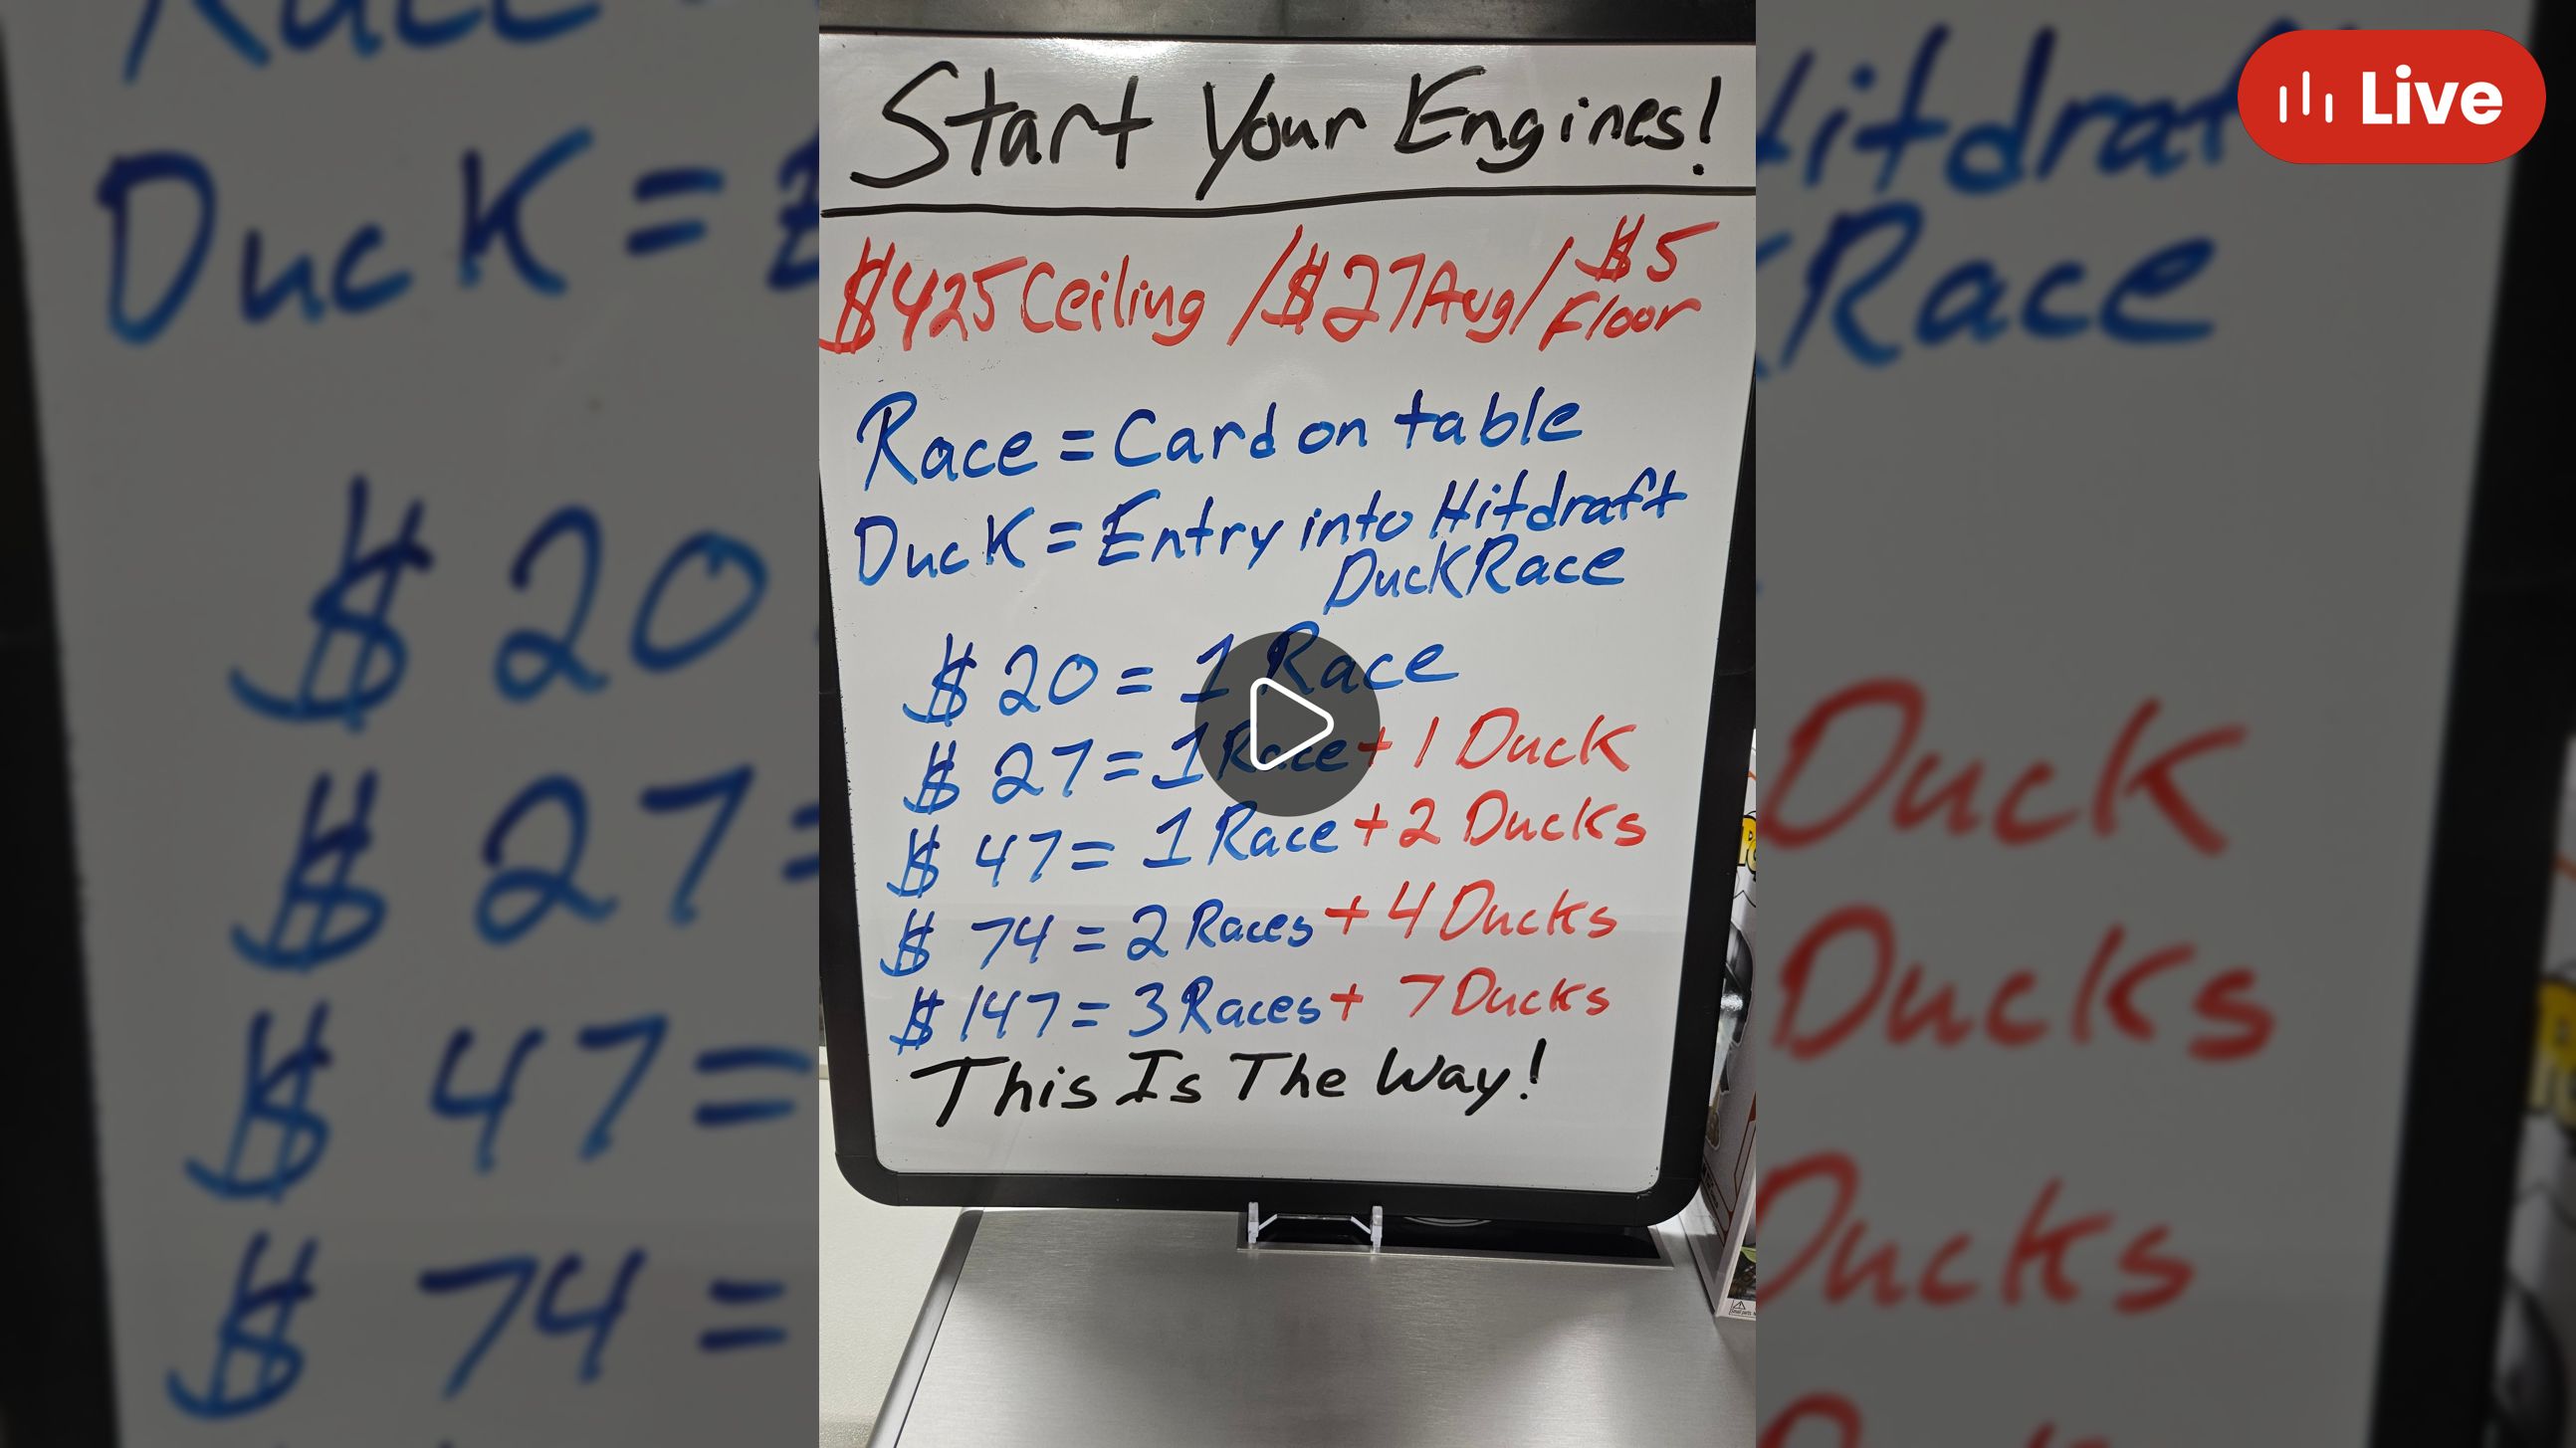 Live
Start Your Engines!
$425 Ceiling / $27 Avg / $5 Floor
Race = Card on table
Duck = Entry into Hitdraft
Duck Race
$20 = 1 Race
$27 = 1 Race + 1 Duck
$47 = 1 Race + 2 Ducks
$74 = 2 Races + 4 Ducks
$147 = 3 Races + 7 Ducks
This Is The Way!